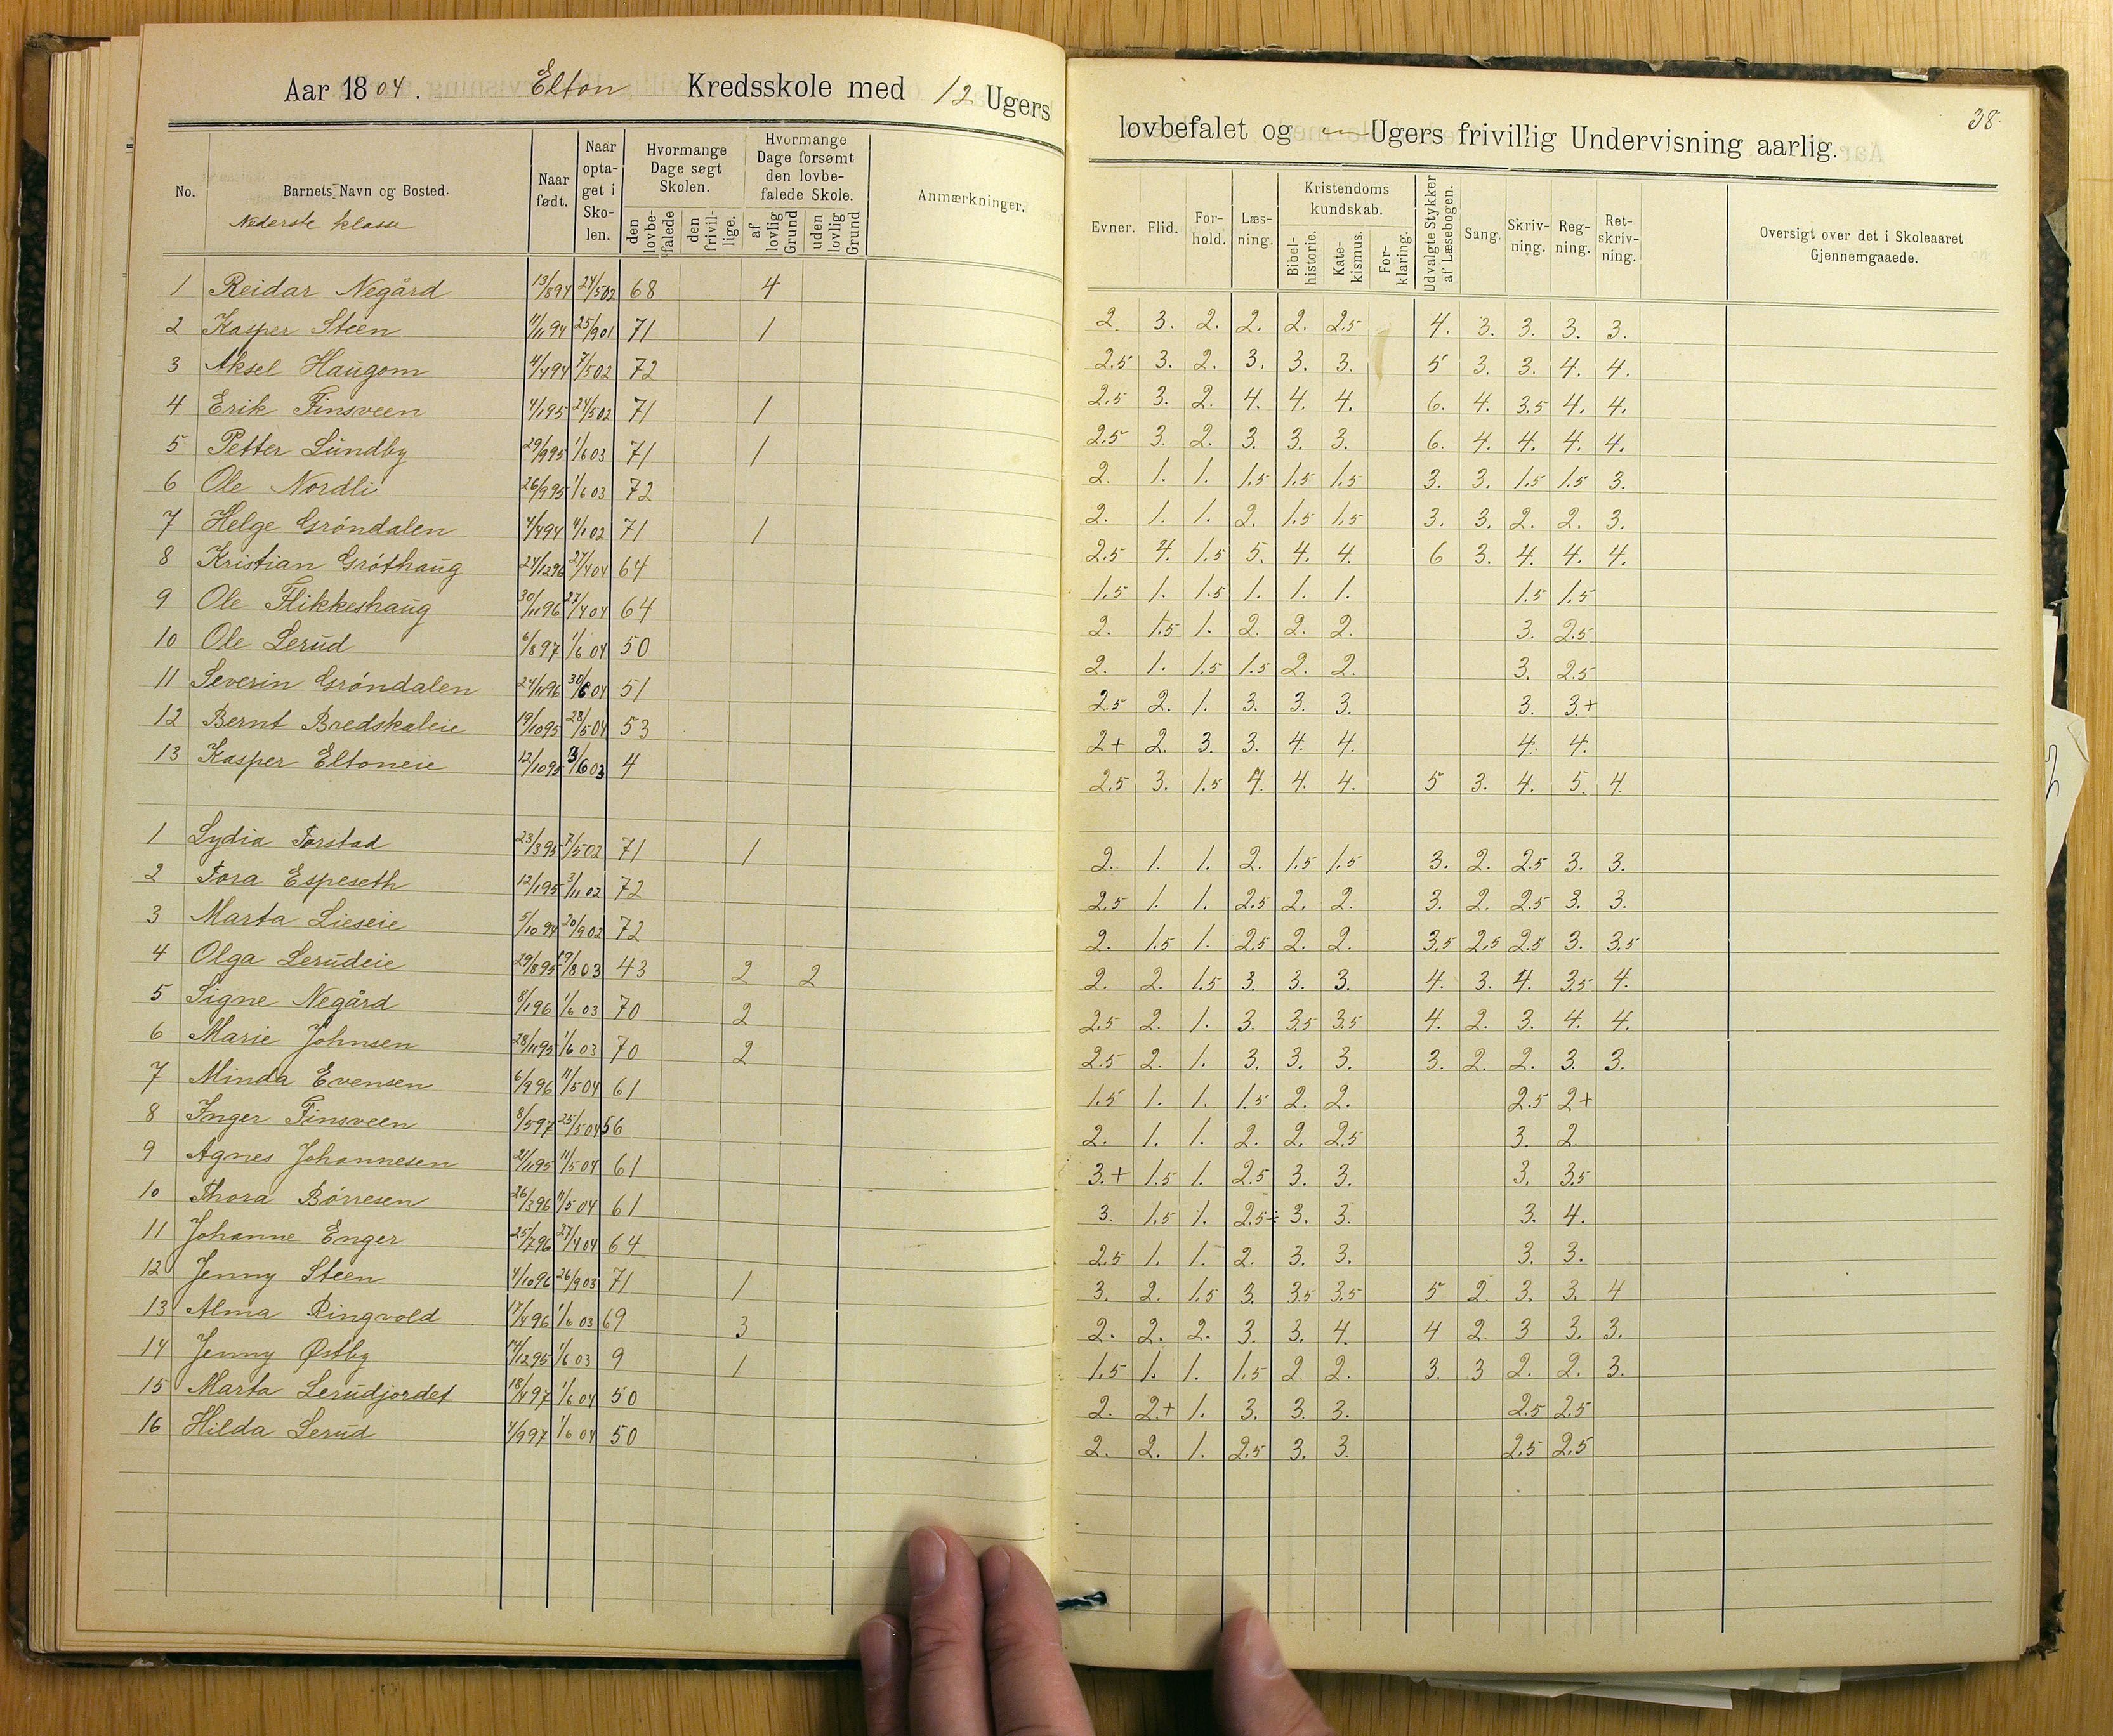 Aar 1804. Elton Kredsskole med 12 Ugers
No. Barnets Navn og Bosted. Naar født. Naar optaget i Skolen. Hvormange Dage søgt Skolen. Hvormange Dage forsømt den lovbefalede Skole. Anmærkninger.
den lovbefalede den frivillige. af lovlig Grund uden lovlig Grund
Nederste klasse
1 Reidar Negård 13/894 24/502 68 4
2 Kasper Steen 11/1194 25/901 71 1
3 Aksel Haugom 4/494 7/502 72
4 Erik Finsveen 4/195 24/502 71 1
5 Petter Lundby 29/995 1/603 71 1
6 Ole Nordli 26/995 1/603 72
7 Helge Gröndalen 4/494 4/102 71 1
8 Kristian Gröthaug 24/1296 27/404 64
9 Ole Flikkeshaug 30/1196 27/404 64
10 Ole Lerud 6/897 1/604 50
11 Severin Gröndalen 24/1196 30/604 51
12 Bernt Bredskaleie 19/1095 28/504 53
13 Kasper Eltoneie 12/1095 3/603 4
1 Lydia Torstad 23/395 7/502 71 1
2 Tora Espeseth 12/195 3/1102 72
3 Marta Lieseie 5/1094 20/902 72
4 Olga Lerudeie 29/895 19/803 43 2 2
5 Signe Negård 8/196 1/603 70 2
6 Marie Johnsen 28/1195 1/603 70 2
7 Minda Evensen 6/996 11/504 61
8 Inger Finsveen 8/597 25/504 56
9 Agnes Johannesen 21/1195 11/504 61
10 Thora Börresen 26/396 11/504 61
11 Johanne Enger 25/796 27/404 64
12 Jenny Steen 4/1096 26/903 71 1
13 Alma Ringvold 17/496 1/603 69 3
14 Jenny Østby 14/1295 1/603 9 1
15 Marta Lerudjordet 18/497 1/604 50
16 Hilda Lerud 4/997 1/604 50
38
lovbefalet og — Ugers frivillig Undervisning aarlig.
Evner. Flid. Forhold. Læsning. Kristendoms kundskab. Udvalgte Stykker af Læsebogen. Sang. Skrivning. Regning. Retskrivning. Oversigt over det i Skoleaaret Gjennemgaaede.
Bibelhistorie. Katekismus. Forklaring.
2 3. 2. 2. 2. 2.5 4. 3. 3. 3. 3.
2.5 3. 2. 3. 3. 3. 5 3. 3. 4. 4.
2.5 3. 2. 4. 4. 4. 6. 4. 3.5 4. 4.
2.5 3. 2. 3. 3. 3. 6. 4. 4. 4. 4.
2. 1. 1. 1.5 1.5 1.5 3. 3. 1.5 1.5 3.
2. 1. 1. 2. 1.5 1.5 3. 3. 2. 2. 3.
2.5 4. 1.5 5. 4. 4. 6 3. 4. 4. 4.
1.5 1. 1.5 1. 1. 1. 1.5 1.5
2. 1.5 1. 2. 2. 2. 3. 2.5
2. 1. 1.5 1.5 2. 2. 3. 2.5
2.5 2. 1. 3. 3. 3. 3. 3.+
2+ 2. 3. 3. 4. 4. 4. 4.
2.5 3. 1.5 4. 4. 4. 5 3. 4. 5. 4
2. 1. 1. 2. 1.5 1.5 3. 2. 2.5 3. 3.
2.5 1. 1. 2.5 2. 2. 3. 2. 2.5 3. 3.
2. 1.5 1. 2.5 2. 2. 3.5 2.5 2.5 3. 3.5
2. 2. 1.5 3. 3. 3. 4. 3. 4. 3.5 4.
2.5 2. 1. 3. 3.5 3.5 4. 2. 3. 4. 4.
2.5 2. 1. 3. 3. 3. 3. 2. 2. 3. 3.
1.5 1. 1. 1.5 2. 2. 2.5 2+
2. 1. 1. 2. 2. 2.5 3. 2
3.+ 1.5 1. 2.5 3. 3. 3. 3.5
3. 1.5 1. 2.5÷ 3. 3. 3. 4.
2.5 1. 1. 2. 3. 3. 3. 3.
3. 2. 1.5 3. 3.5 3.5 5 2 3. 3. 4
2. 2. 2. 3. 3. 4. 4 2. 3 3. 3.
1.5 1. 1. 1.5 2. 2. 3. 3 2. 2. 3.
2. 2.+ 1. 3. 3. 3. 2.5 2.5
2. 2. 1. 2.5 3. 3. 2.5 2.5